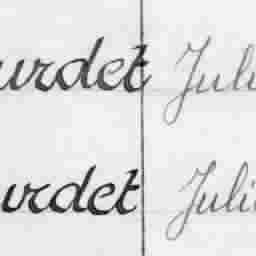 urdet Juli
urdet Juli